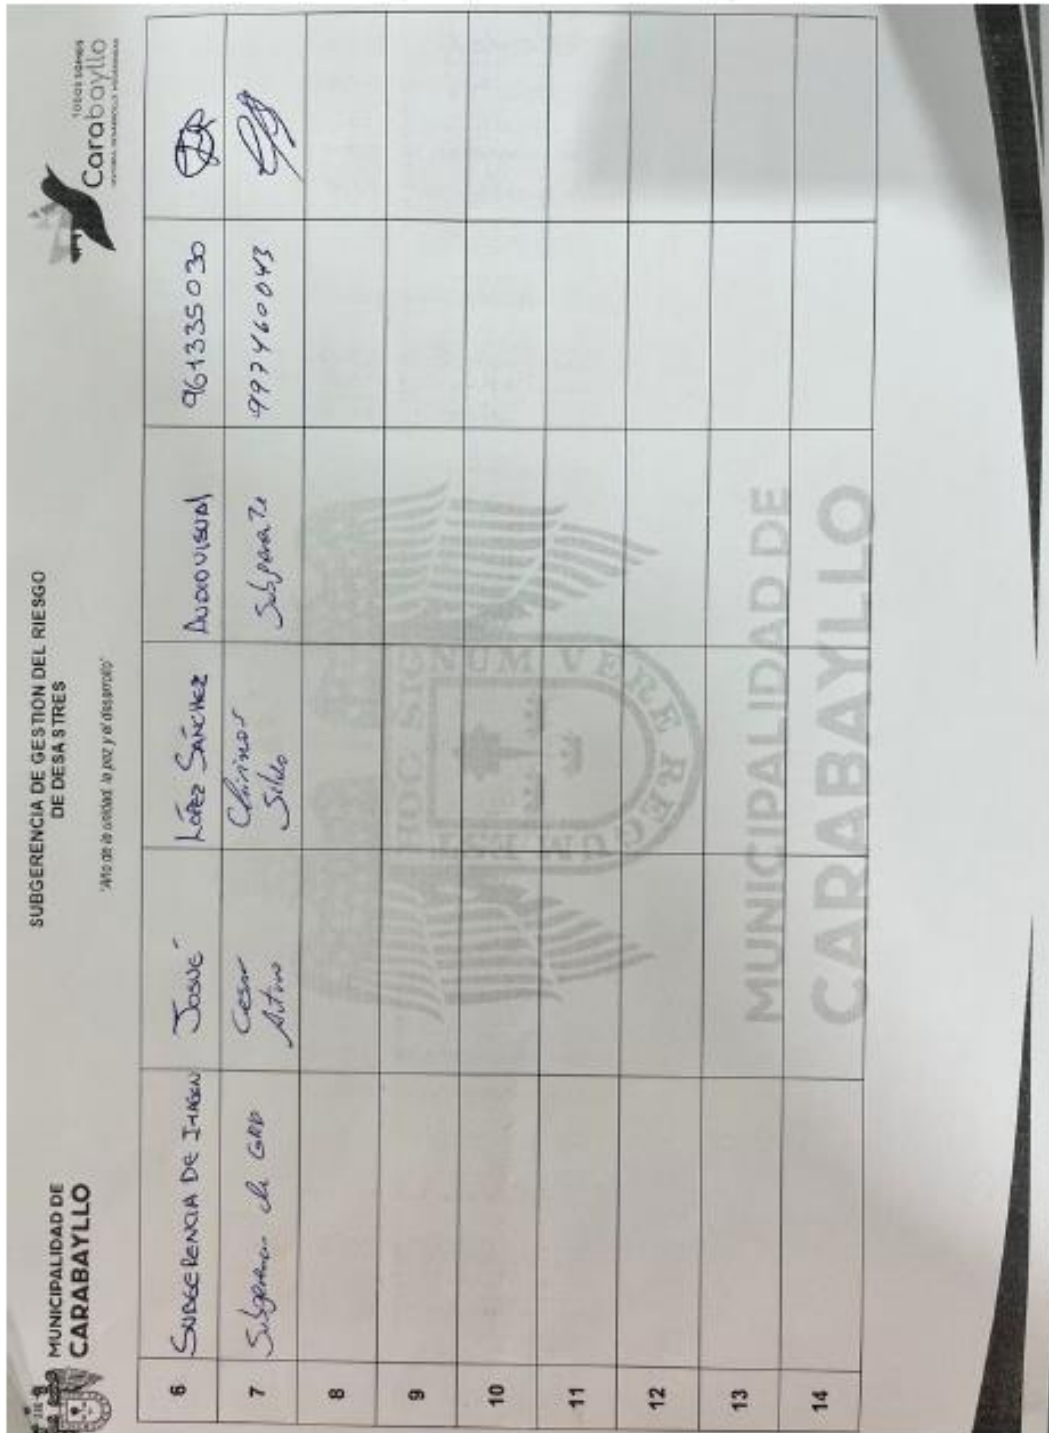 MUNICIPALIDAD DE
CARABAYLLO
SUBGERENCIA DE GESTION DEL RIESGO
DE DESASTRES
"Año de la unidad, la paz y el desarrollo"
TODOS SOMOS
Carabayllo
6 SUBGERENCIA DE IMAGEN JOSUÉ LÓPEZ SÁNCHEZ AUDIOVISUAL 961335030
7 Subgerencia de GRD Cesar Arturo Chirinos 997460043
8
9
10
11
12
13
14
HOC SIGNUM VERE REGUM EST
MUNICIPALIDAD DE
CARABAYLLO